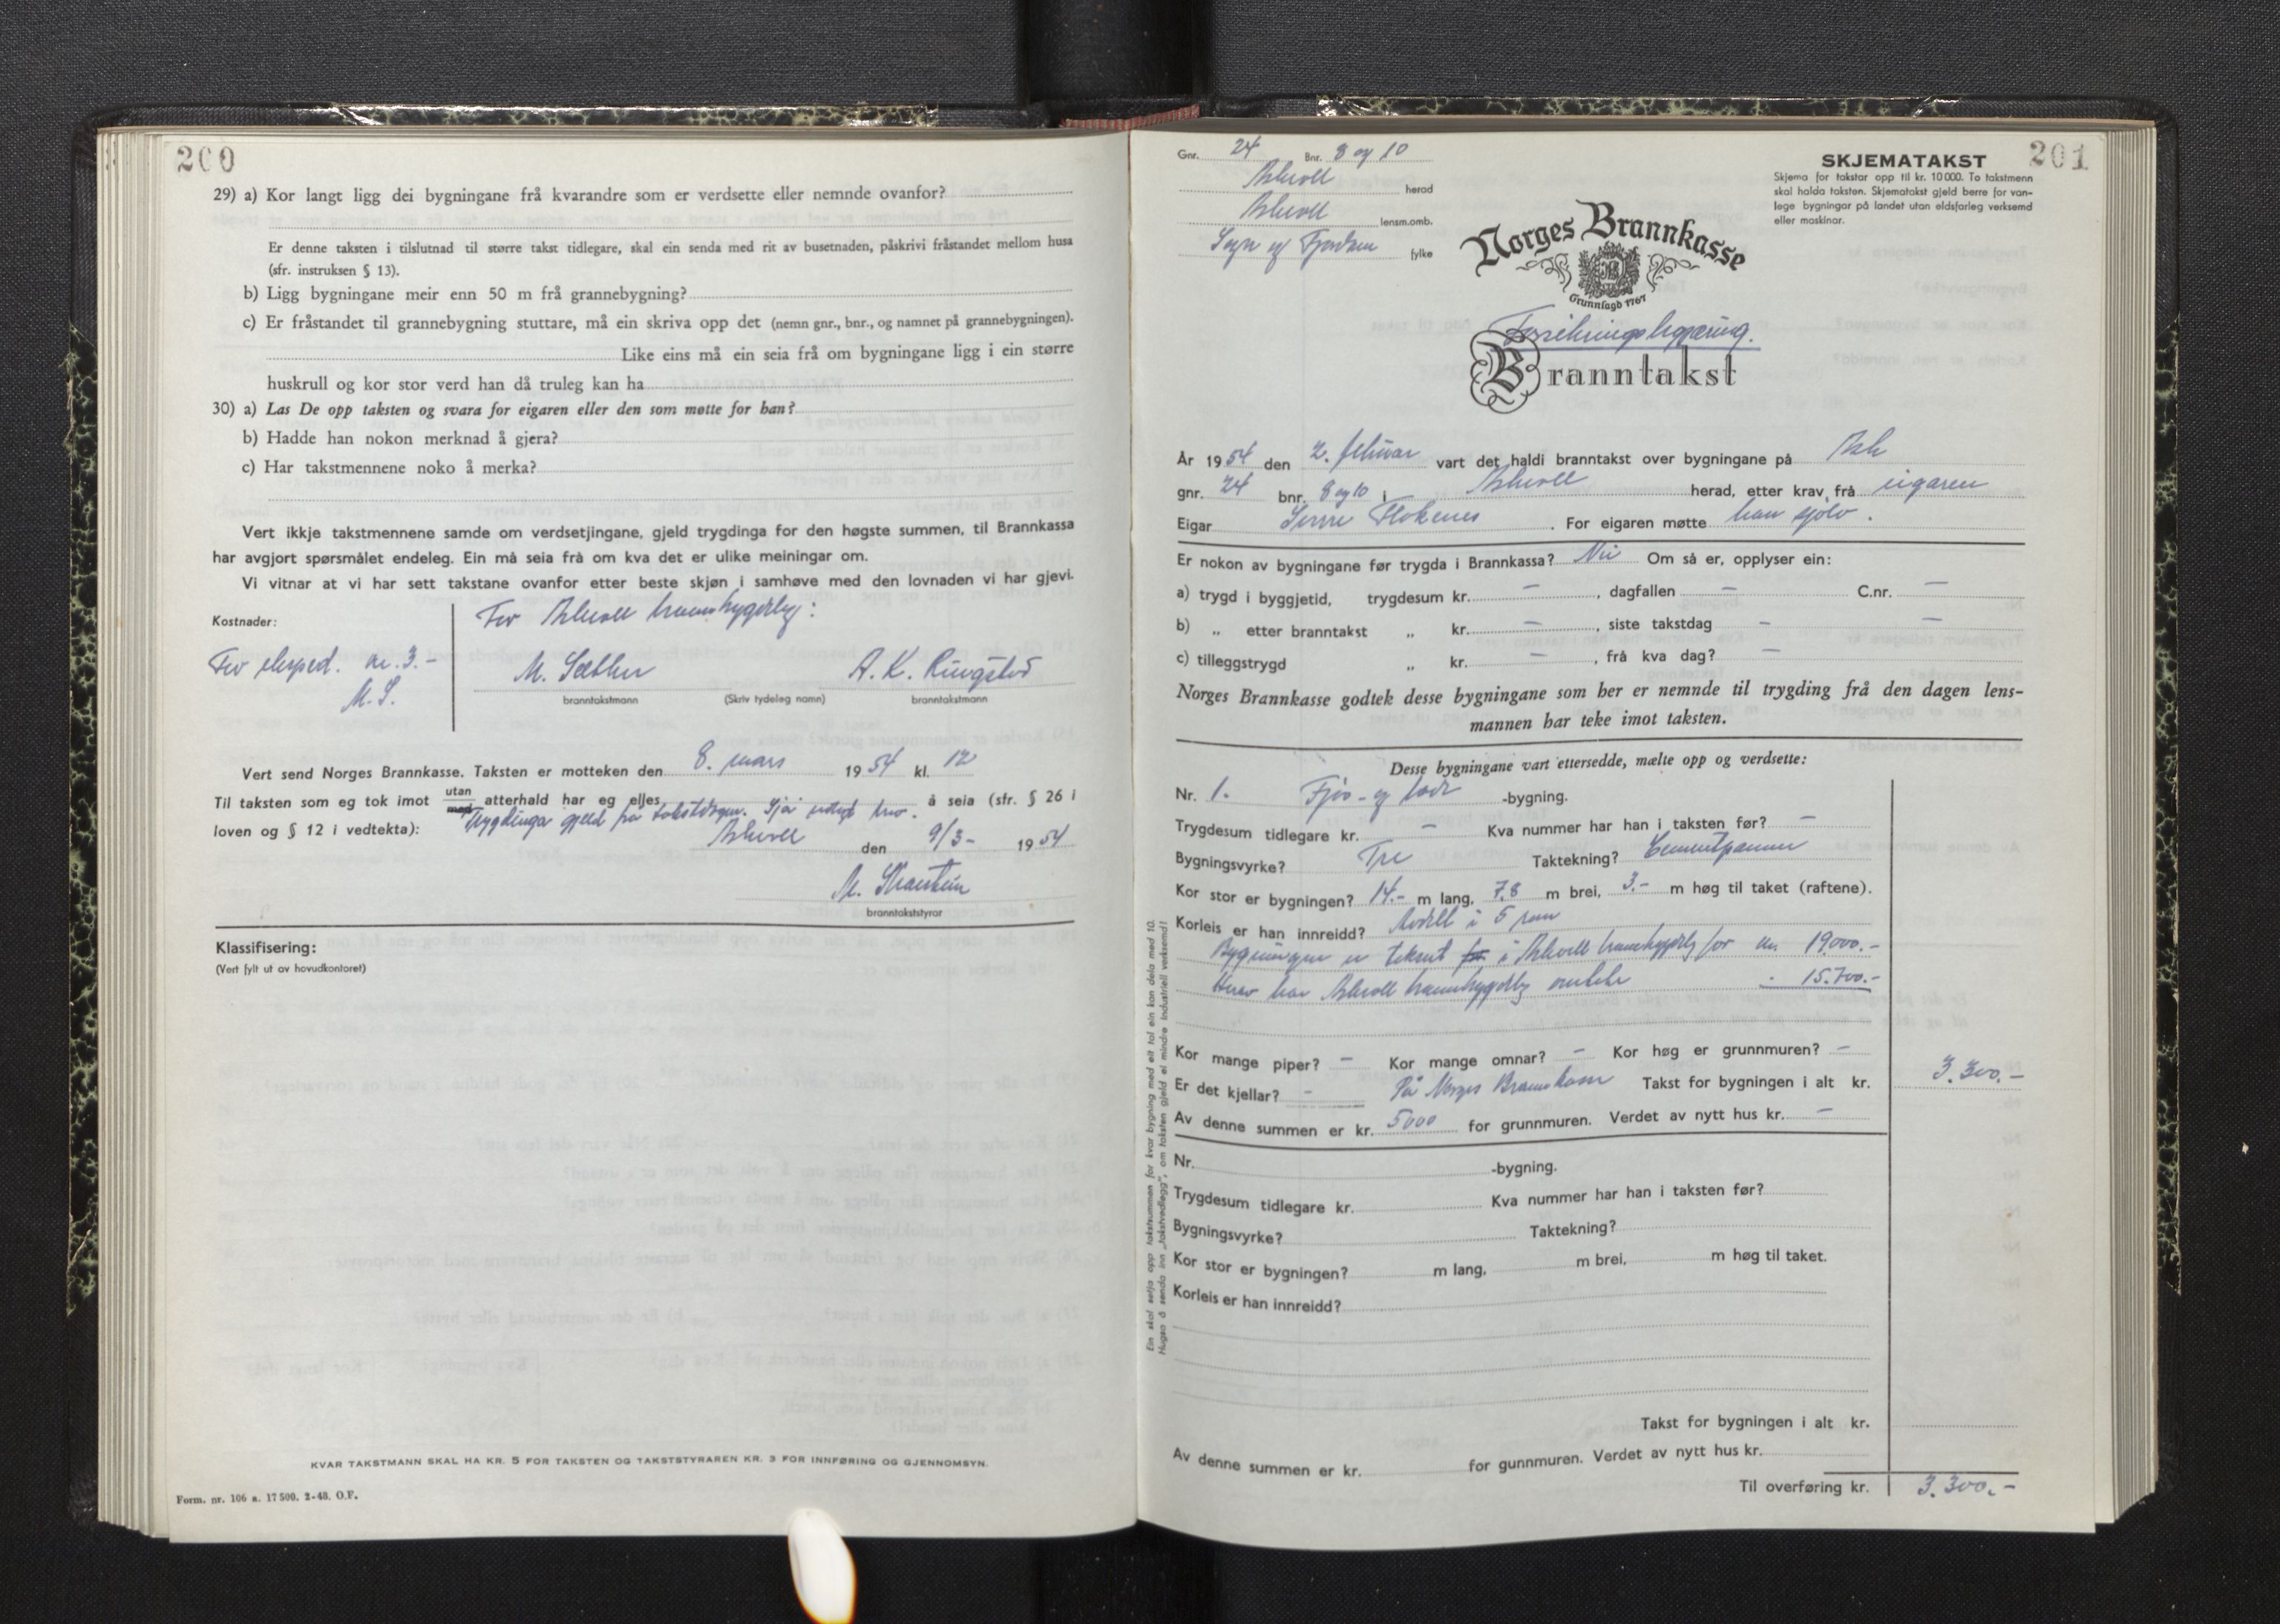 200
29) a) Kor langt ligg dei bygningane frå kvarandre som er verdsette eller nemnde ovanfor?
Er denne taksten i tilslutnad til større takst tidlegare, skal ein senda med rit av busetnaden, påskrivi fråstandet mellom husa
(sfr. instruksen § 13).
b) Ligg bygningane meir enn 50 m frå grannebygning?
c) Er fråstandet til grannebygning stuttare, må ein skriva opp det (nemn gnr., bnr., og namnet på grannebygningen).
Like eins må ein seia frå om bygningane ligg i ein større
huskrull og kor stor verd han då truleg kan ha
30) a) Las De opp taksten og svara for eigaren eller den som møtte for han?
b) Hadde han nokon merknad å gjera?
c) Har takstmennene noko å merka?
Vert ikkje takstmennene samde om verdsetjingane, gjeld trygdinga for den høgste summen, til Brannkassa
har avgjort spørsmålet endeleg. Ein må seia frå om kva det er ulike meiningar om.
Vi vitnar at vi har sett takstane ovanfor etter beste skjøn i samhøve med den lovnaden vi har gjevi.
Kostnader:
For Askvoll branntrygdelag:
For eksped. kr. 3.-
M. S.
M. Sæther
A. K. Ringstad
branntakstmann (Skriv tydeleg namn) branntakstmann
Vert send Norges Brannkasse. Taksten er motteken den 8. mars 1954 kl. 12
Til taksten som eg tok imot utan med atterhald har eg elles å seia (sfr. § 26 i
Trygdinga gjeld frå takstdagen. Sjå vedlagt brev.
loven og § 12 i vedtekta):
Askvoll den 9/3- 1954
branntakststyrar
Klassifisering:
(Vert fylt ut av hovudkontoret)
KVAR TAKSTMANN SKAL HA KR. 5 FOR TAKSTEN OG TAKSTSTYRAREN KR. 3 FOR INNFØRING OG GJENNOMSYN.
Form. nr. 106 a. 17500. 2-48. O.F.
Gnr. 24 Bnr. 8 og 10
Askvoll herad
Askvoll lensm.omb.
Sogn og Fjordane fylke
SKJEMATAKST
201
Skjema for takstar opp til kr. 10 000. To takstmenn
skal halda taksten. Skjematakst gjeld berre for van-
lege bygningar på landet utan eldsfarleg verksemd
eller maskinar.
Norges Brannkasse
Grunnlagd 1767
Forsikringsbegjæring.
Branntakst
År 1954 den 2. februar vart det haldi branntakst over bygningane på Ask
gnr. 24 bnr. 8 og 10 i Askvoll herad, etter krav frå eigaren
Eigar Sverre Flokenes. For eigaren møtte han sjølv.
Er nokon av bygningane før trygda i Brannkassa? Nei Om så er, opplyser ein:
a) trygd i byggjetid, trygdesum kr. - , dagfallen - C.nr. -
b) „ etter branntakst „ kr. - , siste takstdag - -
c) tilleggstrygd „ kr. - , frå kva dag? -
Norges Brannkasse godtek desse bygningane som her er nemnde til trygding frå den dagen lens-
mannen har teke imot taksten.
Desse bygningane vart ettersedde, mælte opp og verdsette:
Nr. 1. Fjøs- og løde -bygning.
Trygdesum tidlegare kr. - Kva nummer har han i taksten før? -
Bygningsvyrke? Tre Taktekning? Cementpanner
Kor stor er bygningen? 14.- m lang, 7,8 m brei, 3.- m høg til taket (raftene).
Korleis er han innreidd? Avdelt i 5 rom
Bygningen er taksert i Askvoll branntrygdelag for kr. 19.000.-
Herav har Askvoll branntrygdelag 15.700.-
Kor mange piper? - Kor mange omnar? - Kor høg er grunnmuren? -
Er det kjellar? - På Norges Brannkasse Takst for bygningen i alt kr. 3.300.-
Av denne summen er kr. 5000 for grunnmuren. Verdet av nytt hus kr. -
Nr. -bygning.
Trygdesum tidlegare kr. Kva nummer har han i taksten før?
Bygningsvyrke? Taktekning?
Kor stor er bygningen? m lang, m brei, m høg til taket.
Korleis er han innreidd?
Takst for bygningen i alt kr.
Av denne summen er kr. for gunnmuren. Verdet av nytt hus kr.
Til overføring kr. 3.300.-
Ein skal setja opp takstsummen for kvar bygning med eit tal ein kan dela med 10.
Hugsa å senda inn „takstvedlegg“, om taksten gjeld ei mindre industriell verksemd!